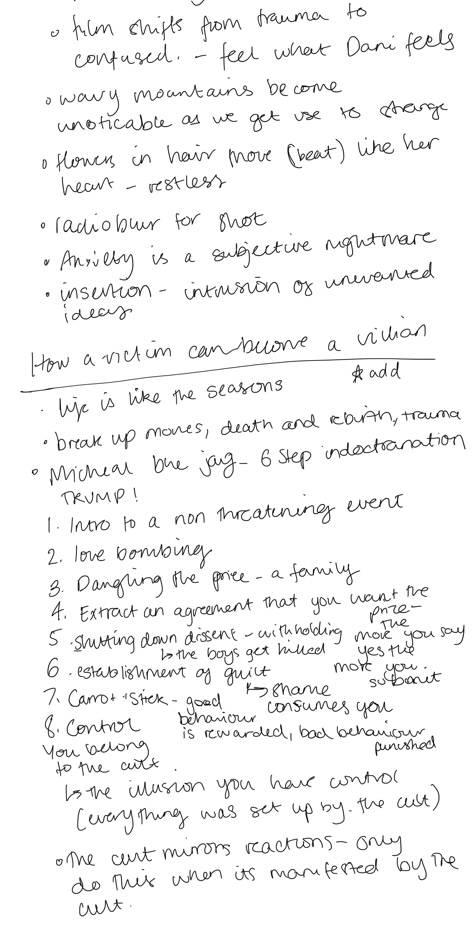 ◦ film shifts from trauma to
confused. - feel what Dani feels
◦ wavy mountains become
unoticable as we get use to strange
◦ flowers in hair move (beat) like her
heart - restless
• radioblur for shot
• Anxiety is a subjective nightmare
• insertion - intrusion of unwanted
ideas
How a victim can become a villian
☆ add
• life is like the seasons
• break up movies, death and rebirth, trauma
◦ Micheal bue jag - 6 step indoctranation
TRUMP!
1. Intro to a non threatening event
2. love bombing
3. Dangling the price - a family
4. Extract an agreement that you want the
prize -
5. shutting down dissent - withholding
the
more you say
↳ the boys get killed
yes the
more you
submit
6. establishment of guilt
↳ shame
consumes you
7. Carrot + stick - good
behaviour
is rewarded, bad behaviour
punished
8. Control
You belong
to the cult.
↳ the illusion you have control
(everything was set up by the cult)
◦ The cult mirrors reactions - only
do this when its manifested by the
cult.